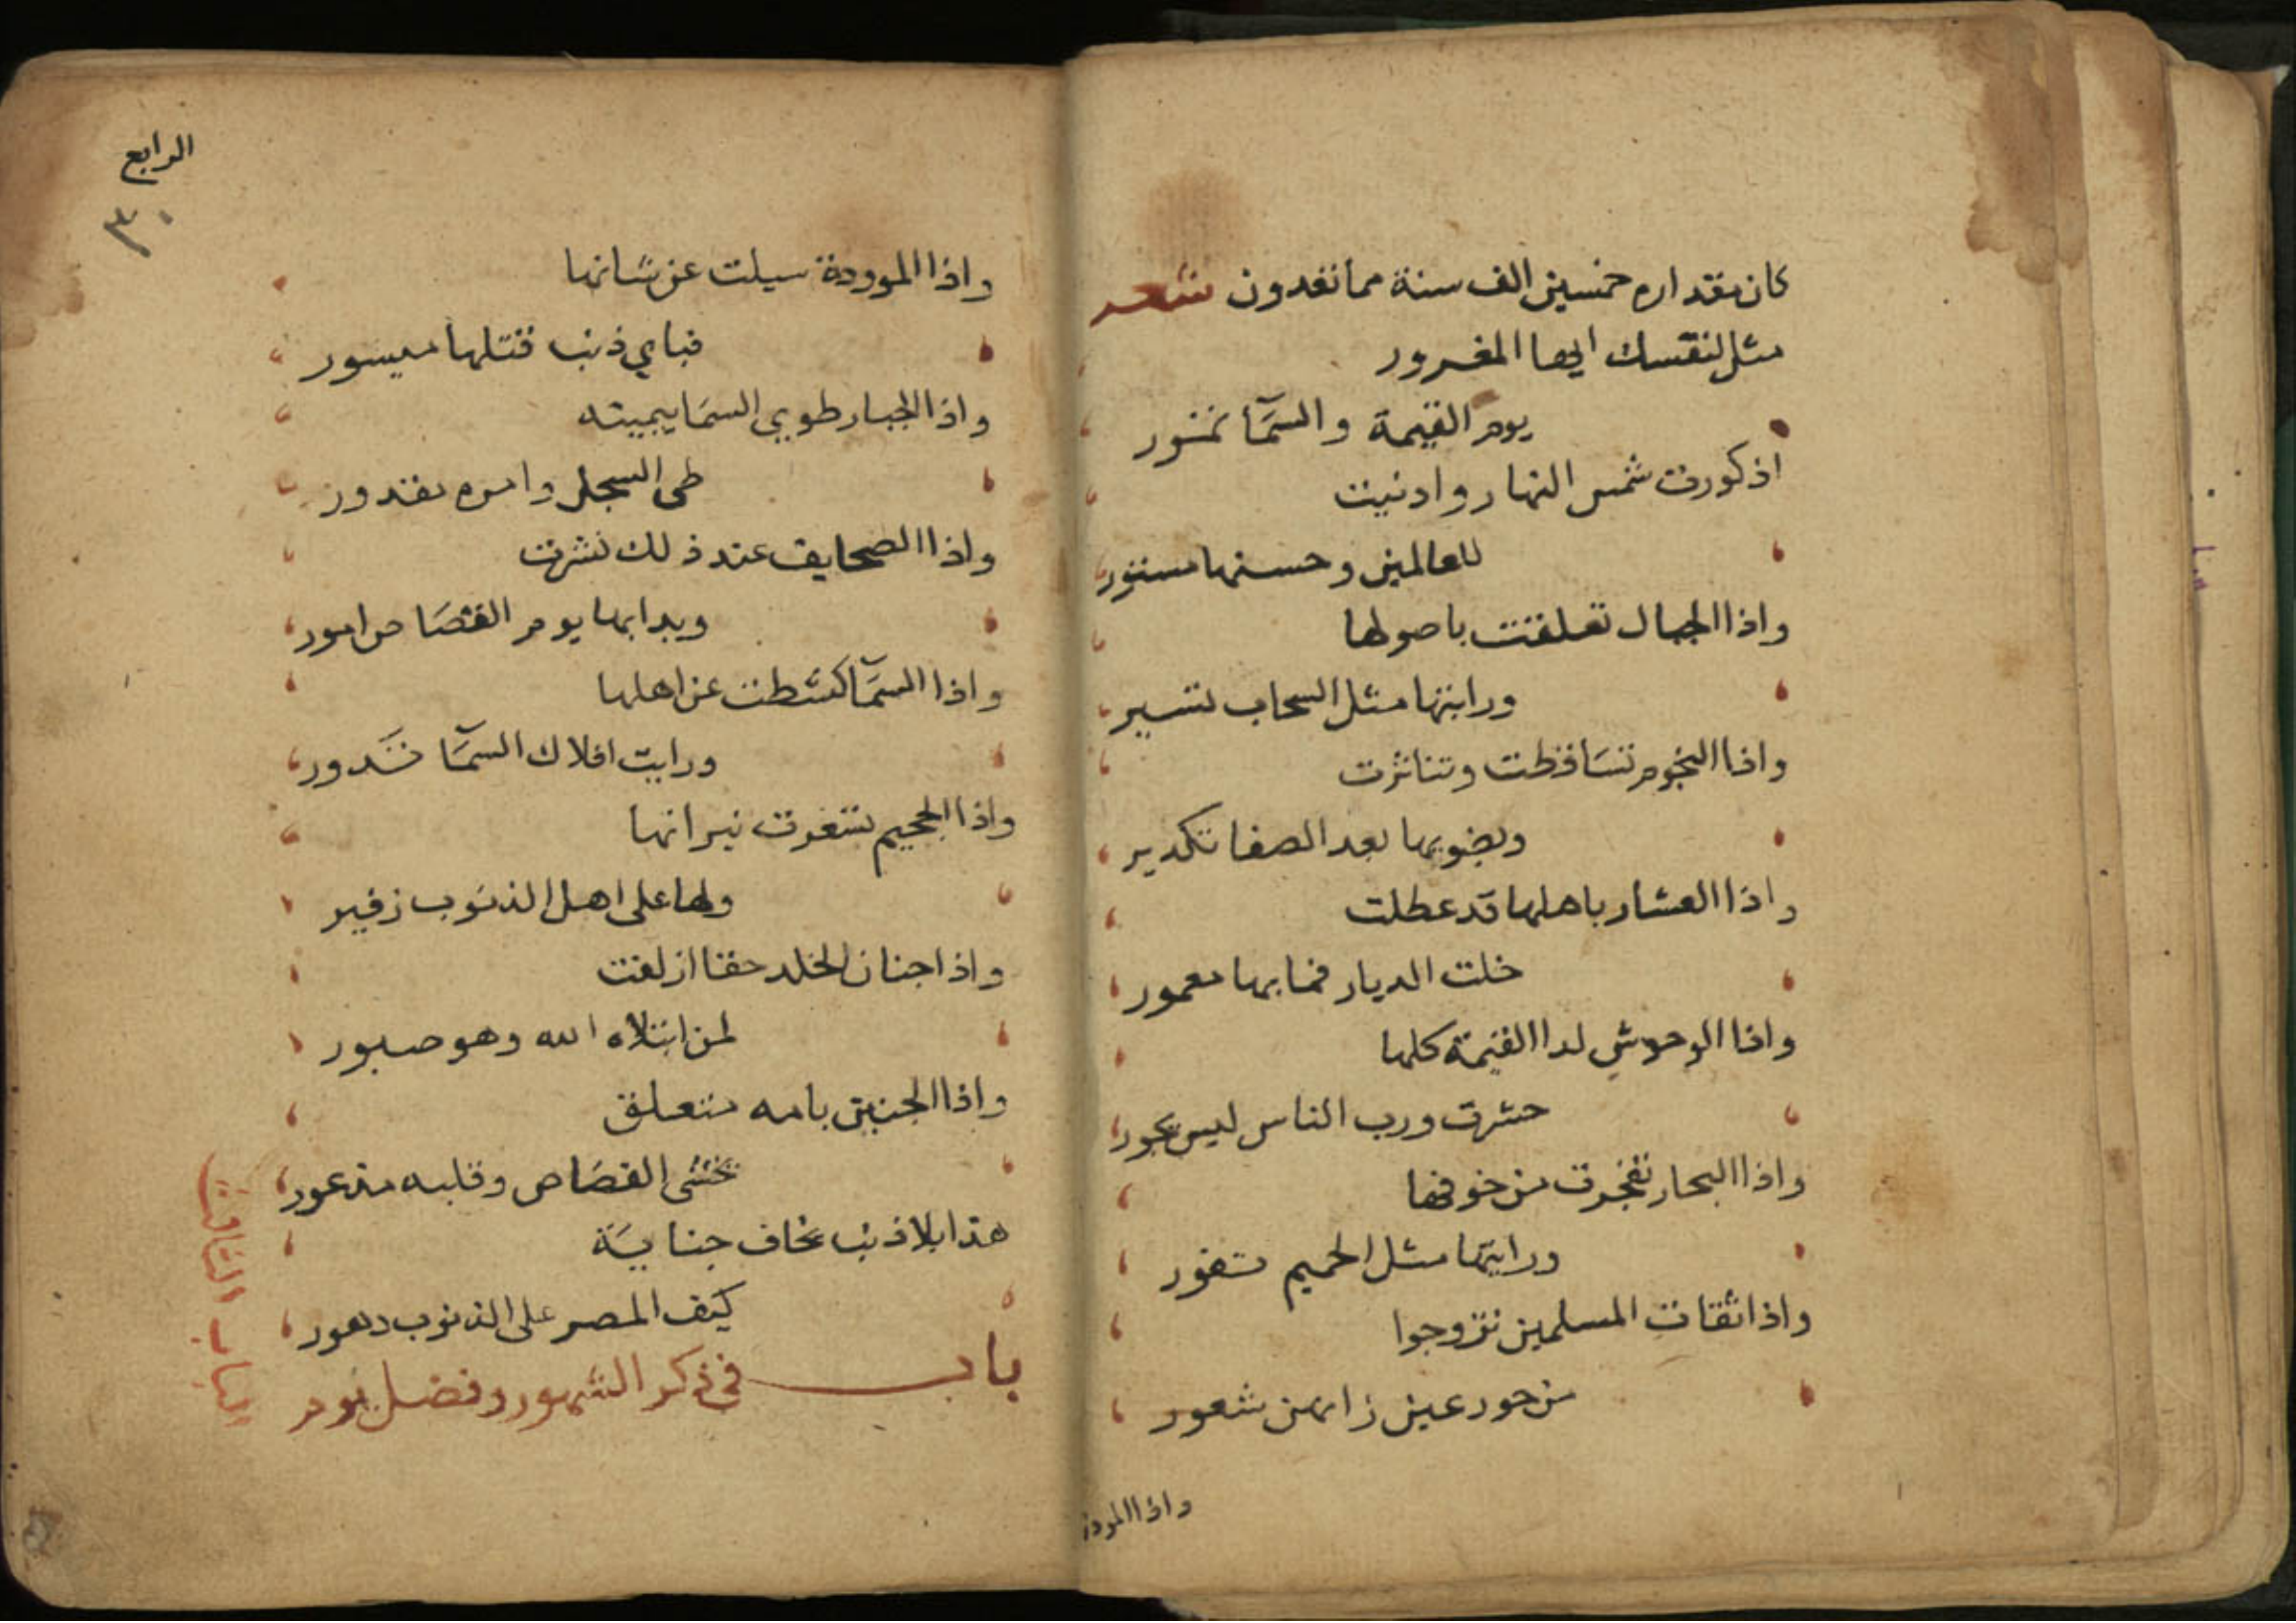 كان مقداره خمسين الف سنة مما تعدون شعر
مثل لنفسك ايها المغرور
يوم القيمة والسمآ تمور
اذ كورت شمس النهار وادنيت
للعالمين وحسنها مستور
واذا الجبال تعلقت باصولها
ورايتها مثل السحاب تسير
واذا النجوم تساقطت وتناثرت
وبضويها بعد الصفا تكدير
واذا العشار باهلها قد عطلت
خلت الديار فما بها معمور
واذا الوحوش لدا القيمة كلها
حشرت ورب الناس ليس يجور
واذا البحار تفجرت من خوفها
ورايتها مثل الحميم تفور
واذا تقات المسلمين تزوجوا
من حور عين زانهن شعور
واذا المودة
الرابع
٣٠
واذا الموودة سيلت عن شانها
فباي ذنب قتلها ميسور
واذا الجبار طوي السما بيمينه
طى السجل وامره مقدور
واذا الصحايف عند ذلك نشرت
وبدا بها يوم القصاص امور
واذا السمآ كشطت عن اهلها
ورايت افلاك السمآ تدور
واذا الجحيم تسعرت نيرانها
ولها على اهل الذنوب زفير
واذا جنان الخلد حقا ازلفت
لمن ابتلاه الله وهو صبور
واذا الجنين بامه متعلق
يخشى القصاص وقلبه مذعور
هذا بلا ذنب يخاف جناية
كيف المصر على الذنوب دهور
باب في ذكر الشهور وفضل يوم
الباب الثالث